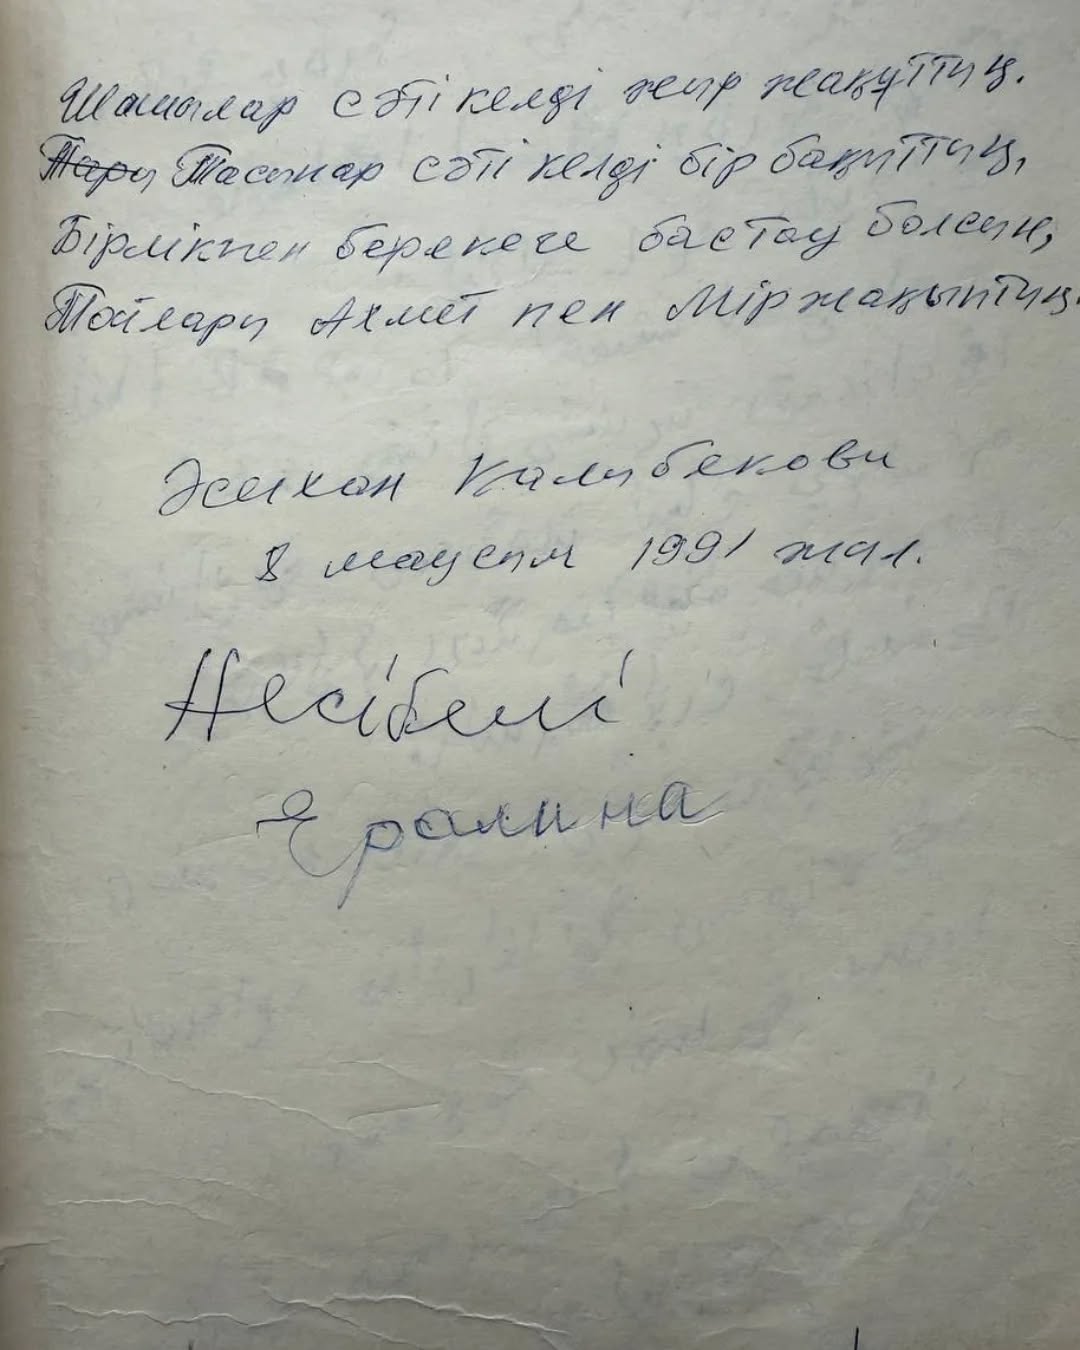 Шашылар сәті келді жыр жақұттың.
Тары Тасынар сәті келді бір бақыттың,
Бірлікпен берекеге бастау болсын,
Тойлары Ахмет пен Міржақыптың.
Әсихан Калыбекова
8 маусым 1991 жыл.
Несібелі
Ералина